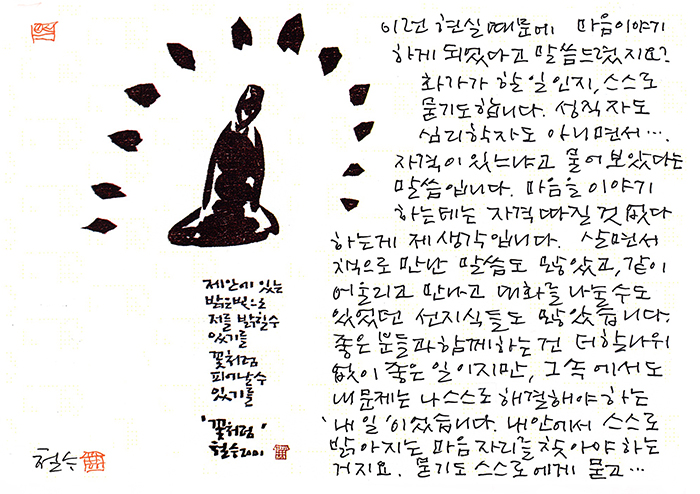 이런 현실때문에 마음이야기
하게 되었다고 말씀드렸지요?
화가가 할 일인지, 스스로
묻기도합니다. 성직자도
심리학자도 아니면서….
자격이 있느냐고 물어보았다는
말씀입니다. 마음을 이야기
하는데는 자격 따질 것 없다
하는게 제 생각입니다. 살면서
책으로 만난 말씀도 많았고, 같이
어울리고 만나고 대화를 나눌수도
있었던 선지식들도 많았습니다.
좋은 분들과 함께하는 건 더할나위
없이 좋은 일이지만, 그속에서도
내 문제는 나 스스로 해결해야하는
'내 일'이었습니다. 내 안에서 스스로
밝아지는 마음자리를 찾아야 하는
거지요. 묻기도 스스로에게 묻고…
제안에 있는
밝은빛으로
저를 밝힐수
있기를
꽃처럼
피어날수
있기를
'꽃처럼'
철수
철수